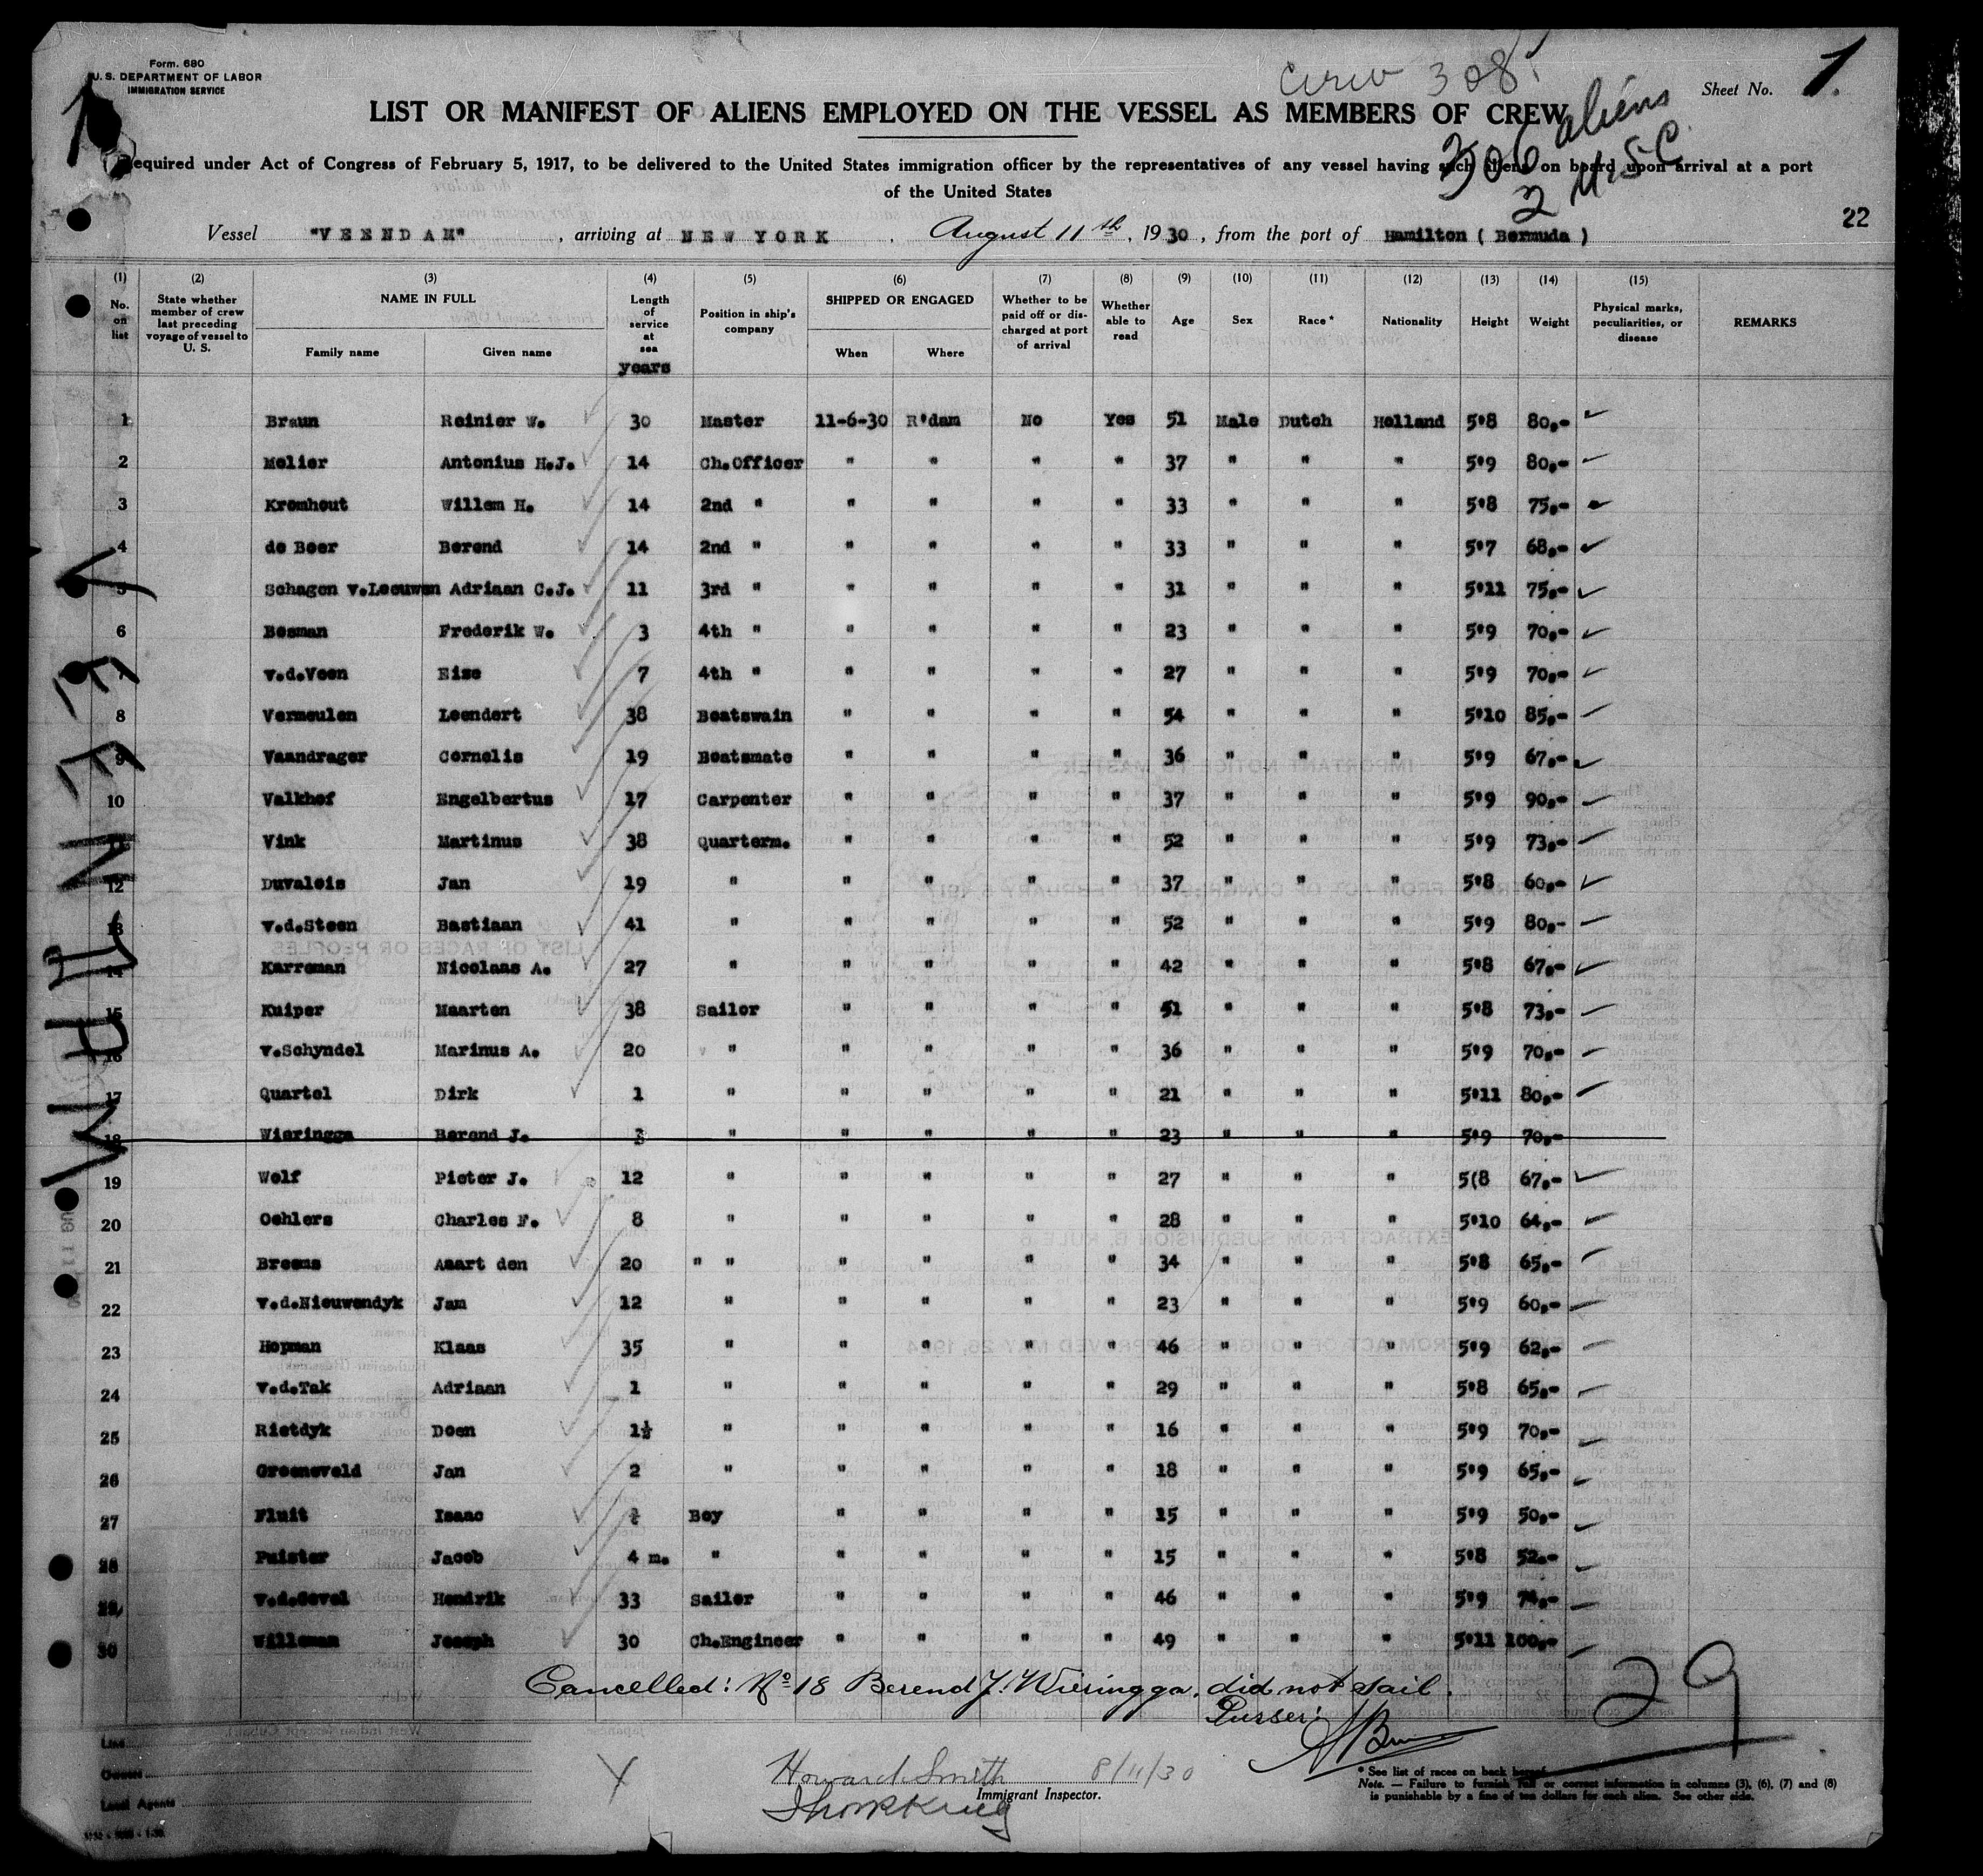 Form. 680
U. S. DEPARTMENT OF LABOR
IMMIGRATION SERVICE
Crew 308
Sheet No. 1.
LIST OR MANIFEST OF ALIENS EMPLOYED ON THE VESSEL AS MEMBERS OF CREW
306 aliens
2 U.S.C.
equired under Act of Congress of February 5, 1917, to be delivered to the United States immigration officer by the representatives of any vessel having such aliens on board upon arrival at a port
of the United States
22
Vessel "VEENDAM", arriving at NEW YORK, August 11th, 1930, from the port of Hamilton ( Bermuda )
(1) (2) (3) (4) (5) (6) (7) (8) (9) (10) (11) (12) (13) (14) (15)
No. on list State whether member of crew last preceding voyage of vessel to U. S. NAME IN FULL Family name Given name Length of service at sea years Position in ship's company SHIPPED OR ENGAGED When Where Whether to be paid off or discharged at port of arrival Whether able to read Age Sex Race* Nationality Height Weight Physical marks, peculiarities, or disease REMARKS
1 Braun Reinier W. 30 Master 11-6-30 R'dam No Yes 51 Male Dutch Holland 5'8 80,-
2 Melier Antonius H.J. 14 Ch.Officer " " " " 37 " " " 5'9 80,-
3 Kromhout Willem H. 14 2nd " " " " " 33 " " " 5'8 75,-
4 de Beer Berend 14 2nd " " " " " 33 " " " 5'7 68,-
5 Schagen v.Leeuwen Adriaan C.J. 11 3rd " " " " " 31 " " " 5'11 75,-
6 Bosman Frederik W. 3 4th " " " " " 23 " " " 5'9 70,-
7 v.d.Veen Eise 7 4th " " " " " 27 " " " 5'9 70,-
8 Vermeulen Leendert 38 Boatswain " " " " 54 " " " 5'10 85,-
9 Vaandrager Cornelis 19 Boatsmate " " " " 36 " " " 5'9 67,-
10 Valkhof Engelbertus 17 Carpenter " " " " 37 " " " 5'9 90,-
11 Vink Martinus 38 Quarterm. " " " " 52 " " " 5'9 73,-
12 Duvalois Jan 19 " " " " " 37 " " " 5'8 60,-
13 v.d.Steen Bastiaan 41 " " " " " 52 " " " 5'9 80,-
14 Karreman Nicolaas A. 27 " " " " " 42 " " " 5'8 67,-
15 Kuiper Maarten 38 Sailor " " " " 51 " " " 5'8 73,-
16 v.Schyndel Marinus A. 20 " " " " " 36 " " " 5'9 70,-
17 Quartel Dirk 1 " " " " " 21 " " " 5'11 80,-
18 Wieringga Barend J. 3 " " " " " 23 " " " 5'9 70,-
19 Wolf Pieter J. 12 " " " " " 27 " " " 5(8 67,-
20 Oehlers Charles F. 8 " " " " " 28 " " " 5'10 64,-
21 Breems Aaart den 20 " " " " " " 34 " " " 5'8 65,-
22 v.d.Nieuwendyk Jan 12 " " " " " 23 " " " 5'9 60,-
23 Hopman Klaas 35 " " " " " 46 " " " 5'9 62,-
24 v.d.Tak Adriaan 1 " " " " " 29 " " " 5'8 65,-
25 Rietdyk Doen 1½ " " " " " 16 " " " 5'9 70,-
26 Groeneveld Jan 2 " " " " " 18 " " " 5'9 65,-
27 Fluit Isaac Boy " " " " 15 " " " 5'9 50,-
28 Puister Jacob 4 m. " " " " " 15 " " " 5'8 52,-
29 v.d.Gevel Hendrik 33 Sailor " " " " 46 " " " 5'9 74,-
30 Willeman Joseph 30 Ch.Engineer " " " " 49 " " " 5'11 100,-
Cancelled: No 18 Berend J. Wieringga, did not sail.
Purser:
29
Line
Owners
Local Agents
Howard Smith 8/11/30
Immigrant Inspector.
* See list of races on back hereof.
Note. — Failure to furnish full or correct information in columns (3), (6), (7) and (8)
is punishable by a fine of ten dollars for each alien. See other side.